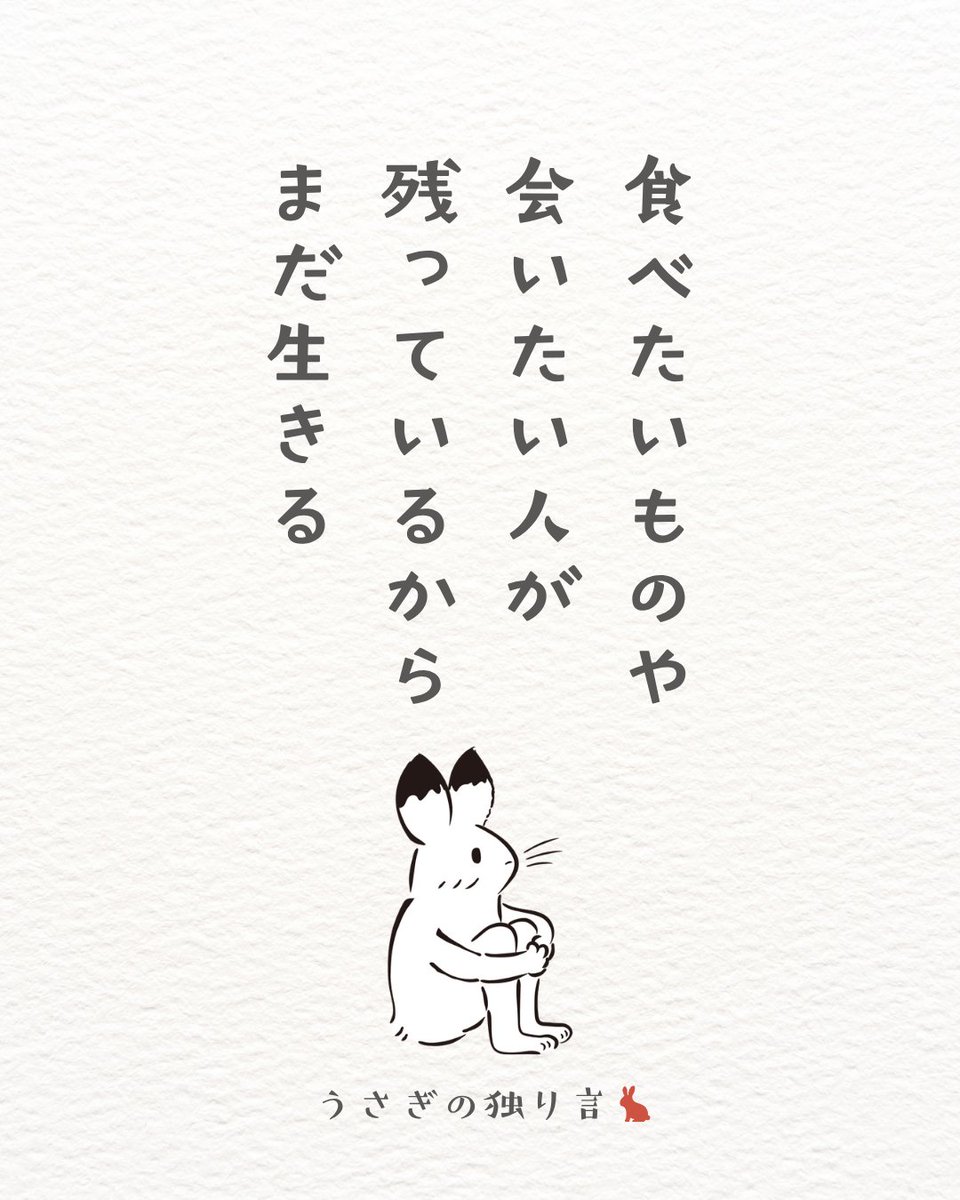 食べたいものや
会いたい人が
残っているから
まだ生きる
うさぎの独り言